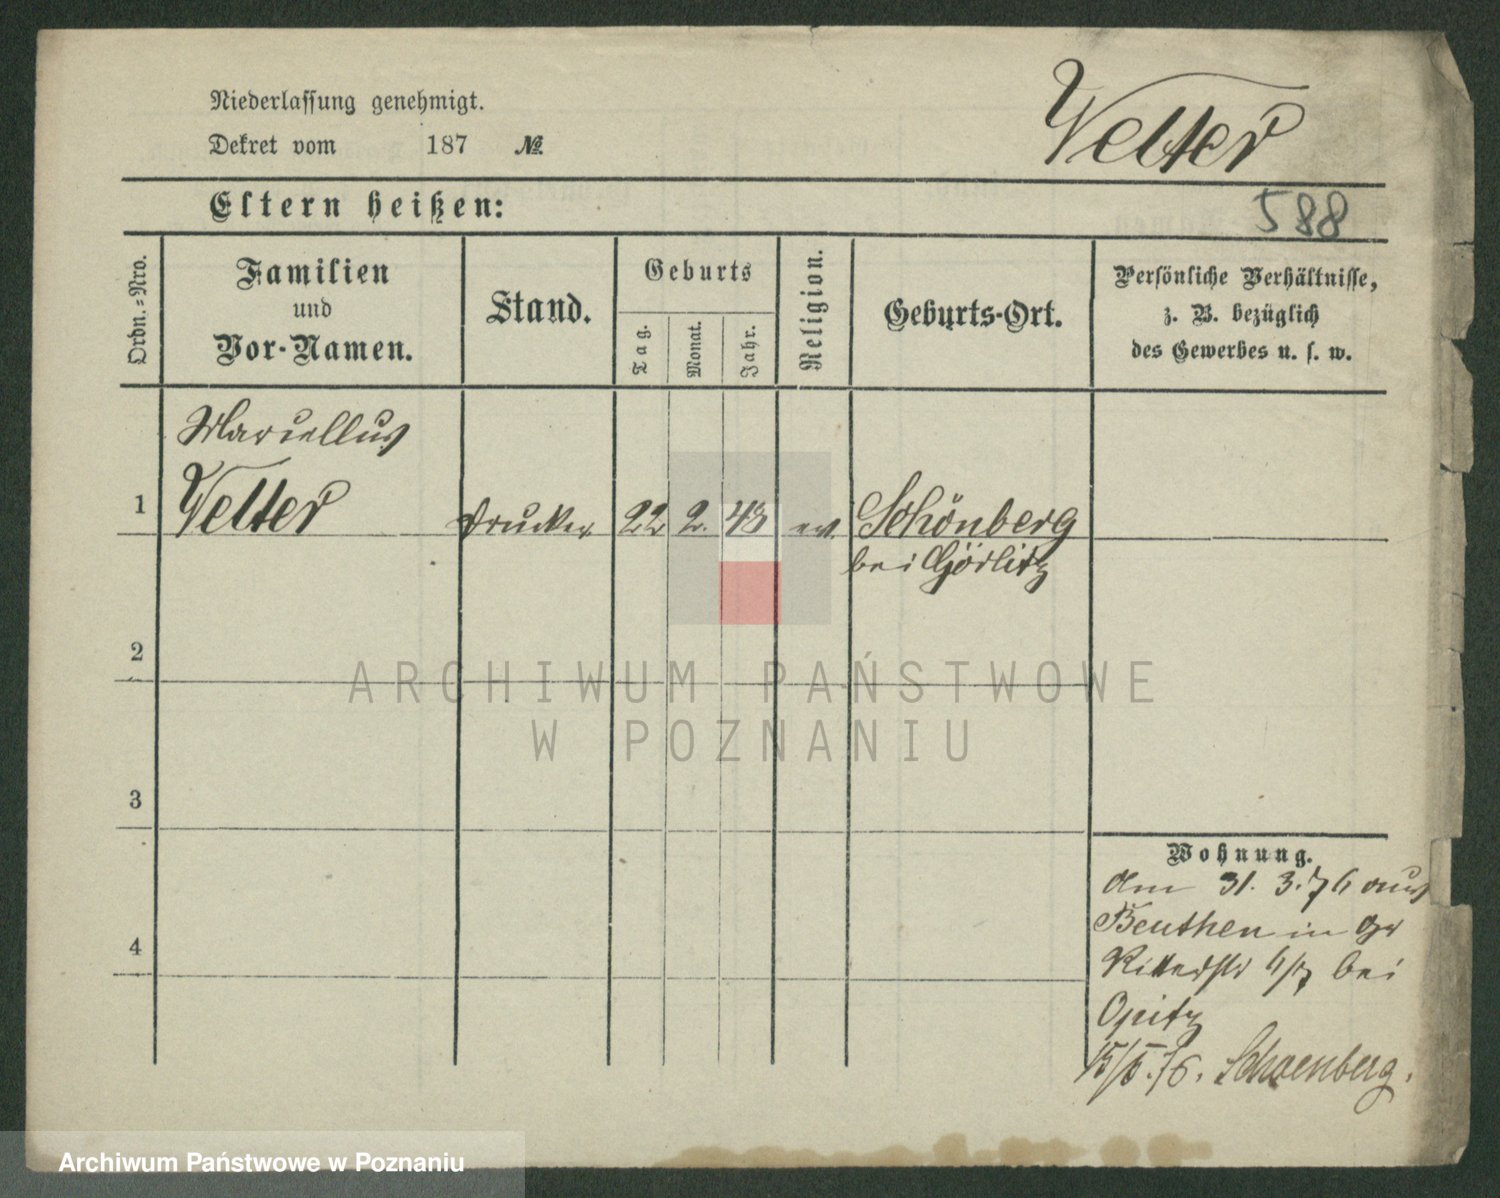 Niederlassung genehmigt.
Dekret vom 187 №
Welter
588
Eltern heißen:
Ordn.-Nro.
Familien
und
Vor-Namen.
Stand.
Geburts
Tag.
Monat.
Jahr.
Religion.
Geburts-Ort.
Persönliche Verhältnisse,
z. B. bezüglich
des Gewerbes u. s. w.
Marcellus
1 Welter Drucker 22 2. 48 ev. Schönberg
bei Görlitz
2
ARCHIWUM PAŃSTWOWE
W POZNANIU
3
Wohnung.
Am 31. 3. 76 aus
Beuthen in
4
Ritterstr bei
Opitz
Schoenberg.
Archiwum Państwowe w Poznaniu